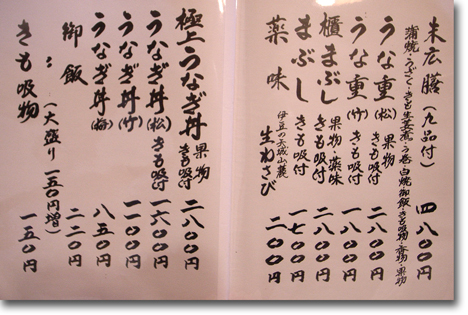 末広膳（九品付） 四八〇〇円
蒲焼・うざく・きも生姜煮・う巻 白焼 御飯・きも吸物・香物・果物
うな重（松）きも吸付 二八〇〇円
うな重（竹）きも吸付 一八〇〇円
櫃まぶし 果物・薬味 きも吸付 二八〇〇円
まぶし きも吸付 一七〇〇円
薬味 伊豆の天城山麓 生わさび 二〇〇円
極上うなぎ丼 果物 きも吸付 二八〇〇円
うなぎ丼（松）きも吸付 一六〇〇円
うなぎ丼（竹） 一一〇〇円
うなぎ丼（梅） 八五〇円
御飯 二二〇円
〃：（大盛り一五〇円増）
きも吸物 一五〇円